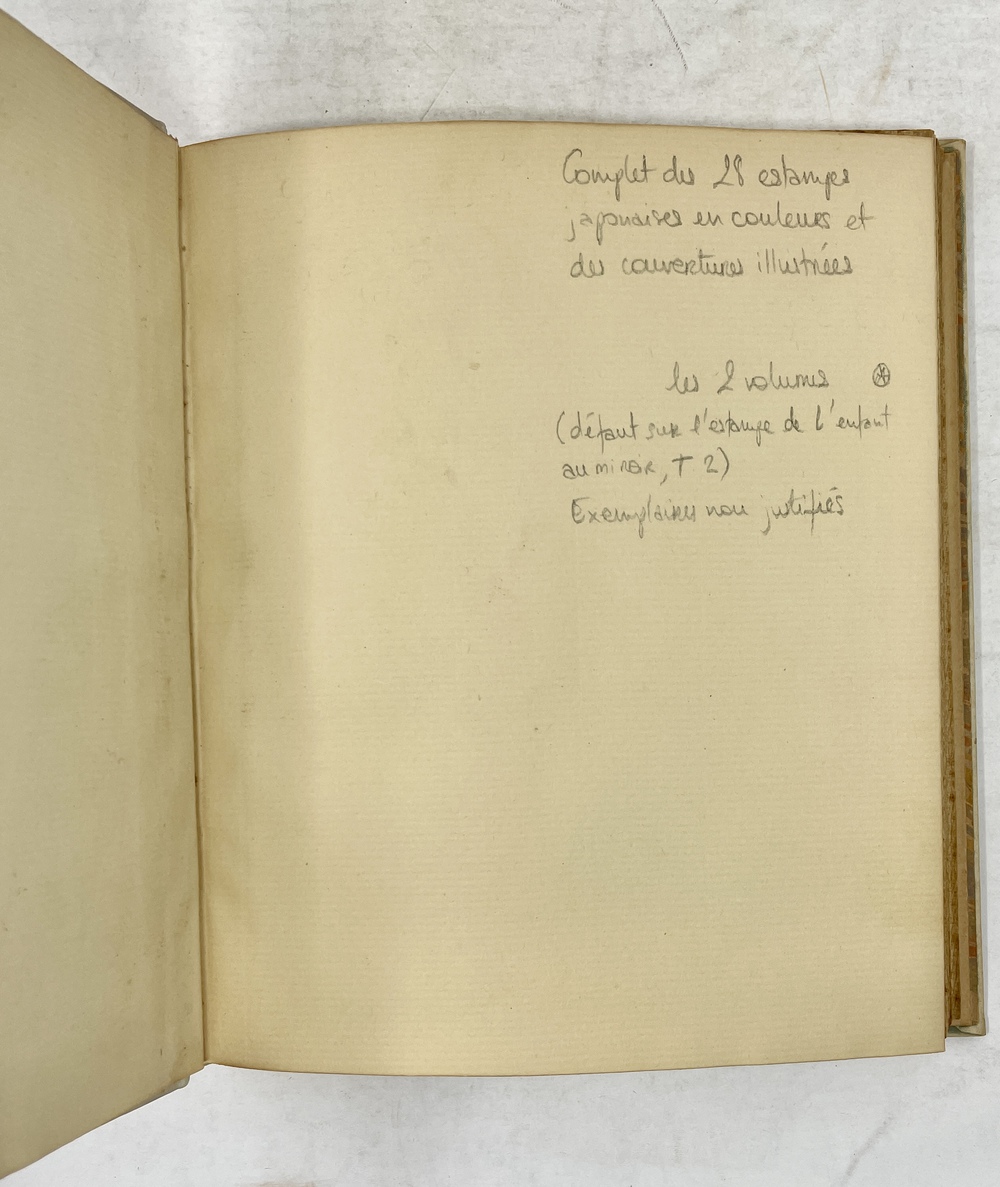 Complet des 28 estampes
japonaises en couleurs et
des couvertures illustrées
les 2 volumes
(défaut sur l'estampe de l'enfant
au miroir, T 2)
Exemplaires non justifiés